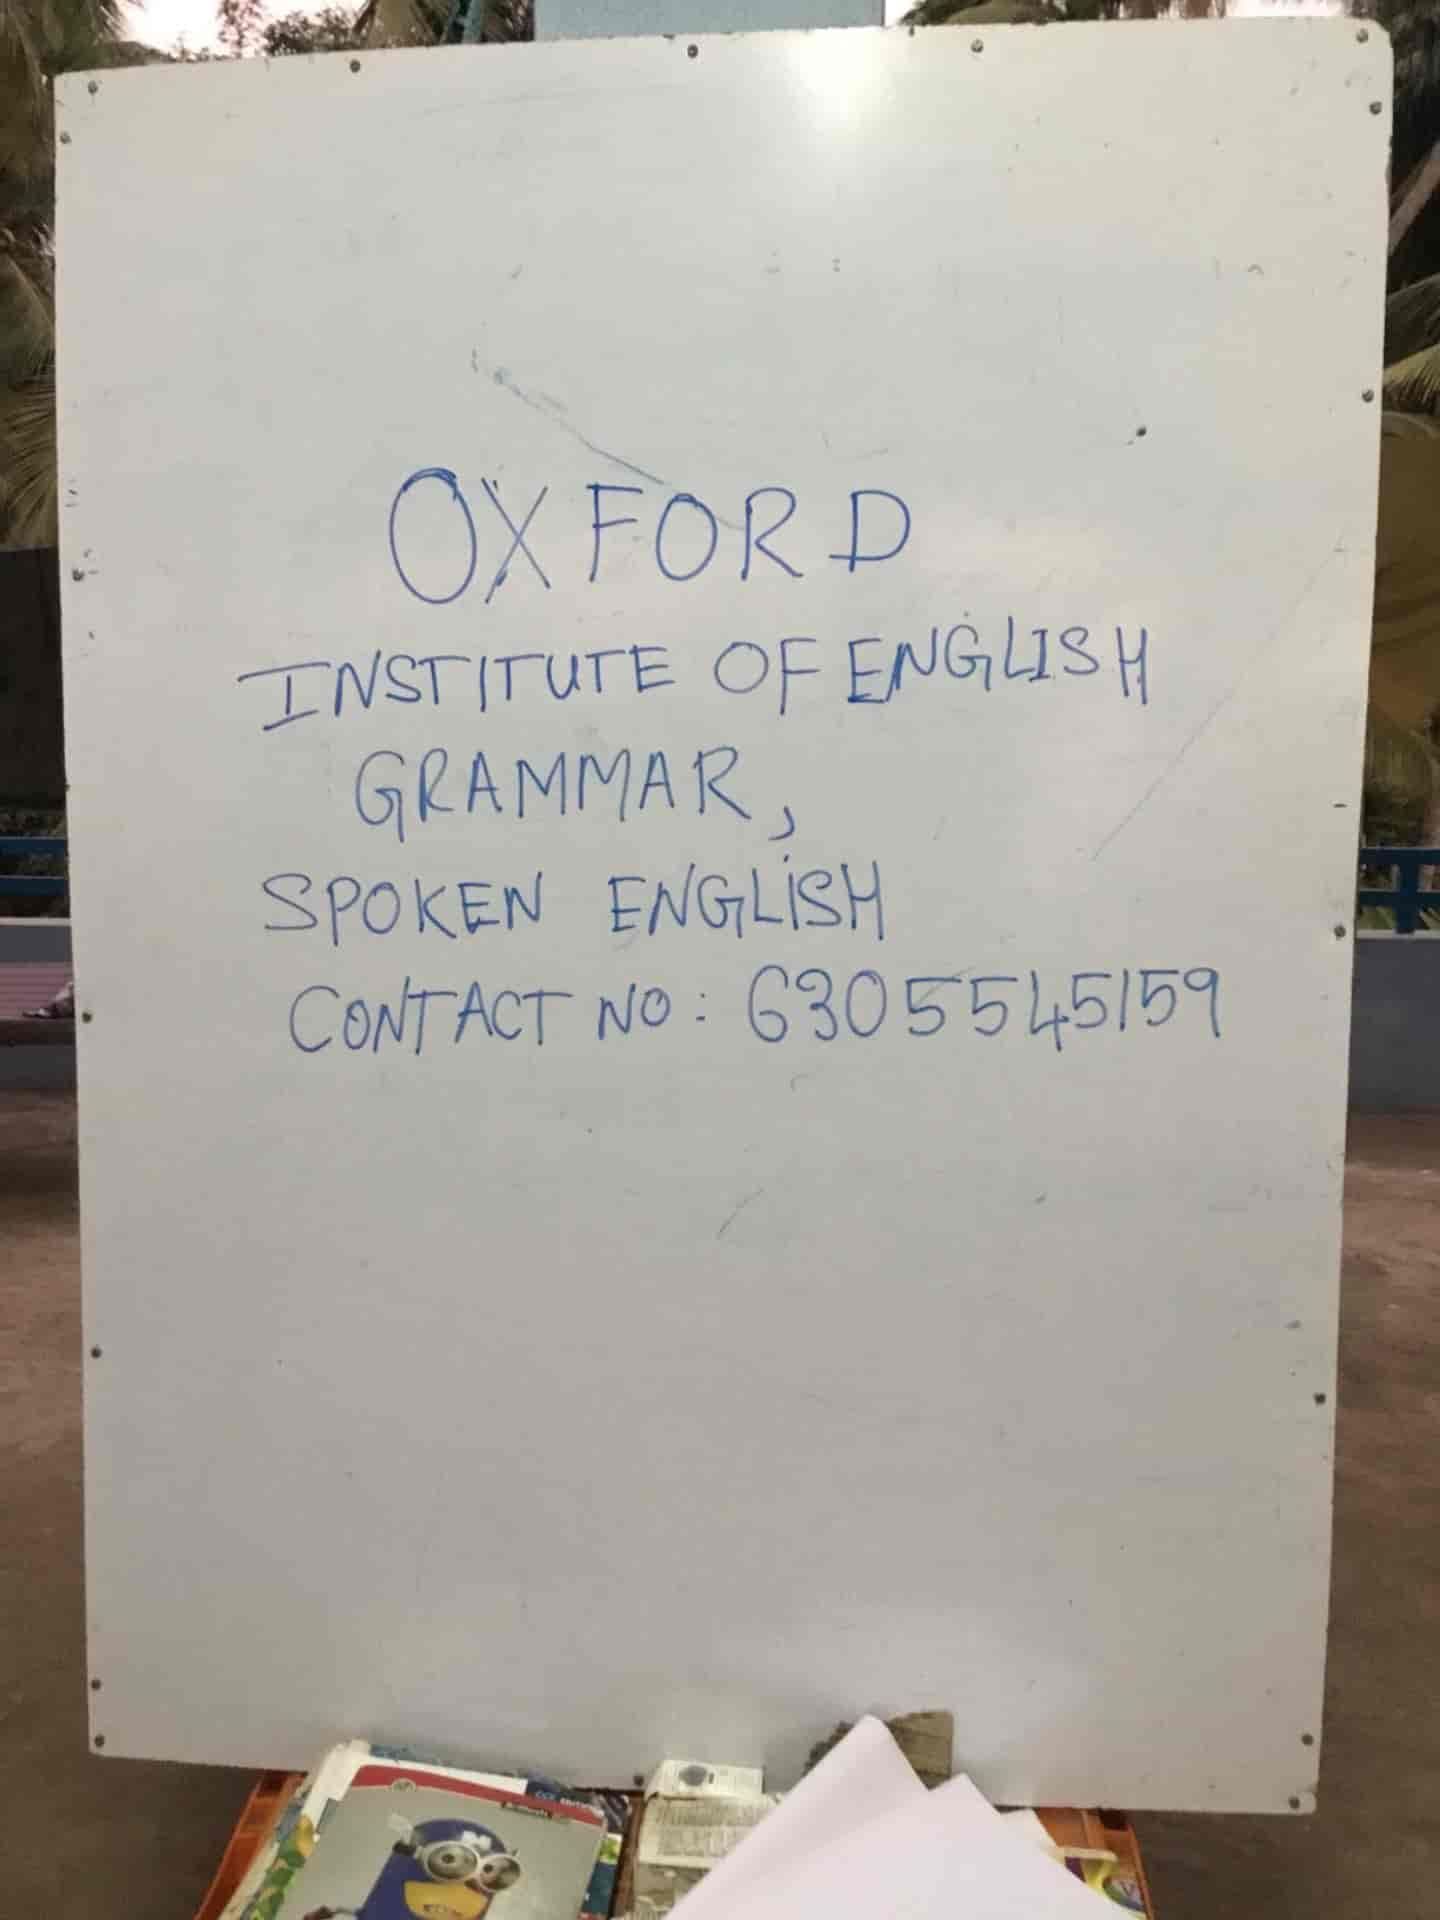 OXFORD
INSTITUTE OF ENGLISH
GRAMMAR,
SPOKEN ENGLISH
CONTACT NO: 6305545159